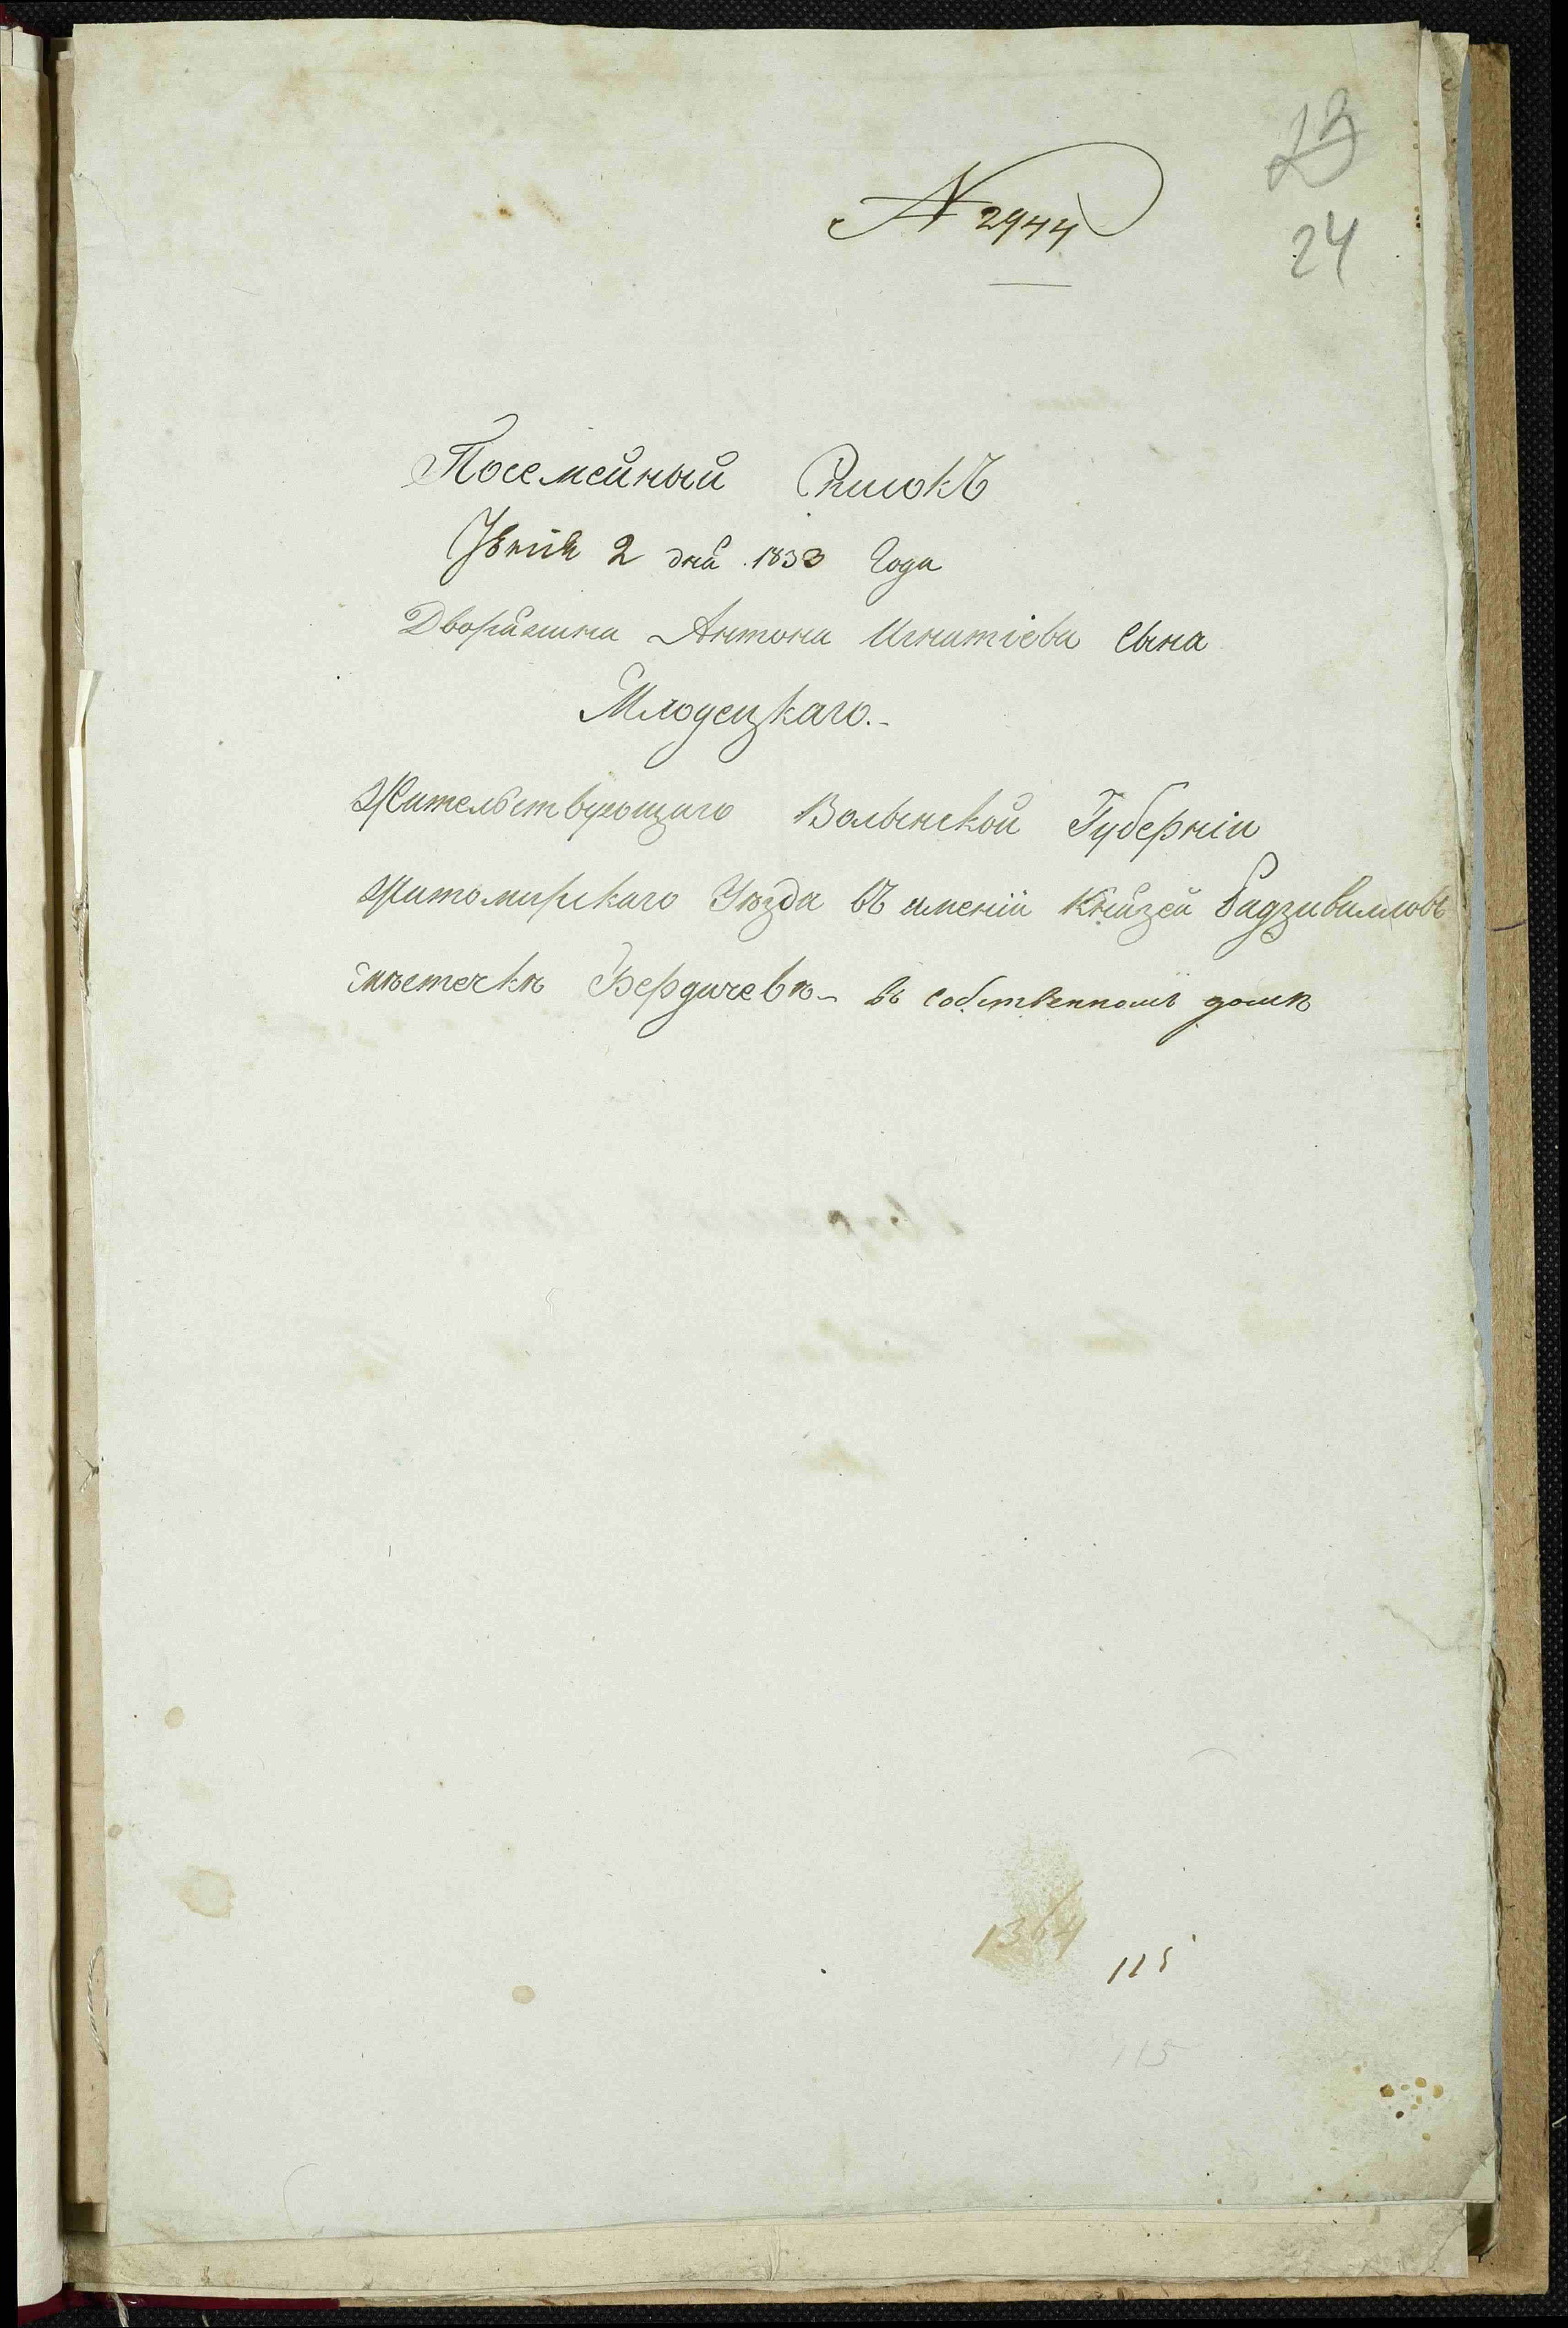 23
№ 2944
24
Посемейный Списокъ
Іюнія 2 дня 1833 Года
Дворянина Антона Игнатіева Сына
Млодецкаго.-
Жительствующаго Волынской Губерніи
Житомирскаго Уѣзда въ именіи Князей Радзивиловъ
мѣстечкѣ Бердичевѣ - въ собственномъ домѣ
1364
115
115